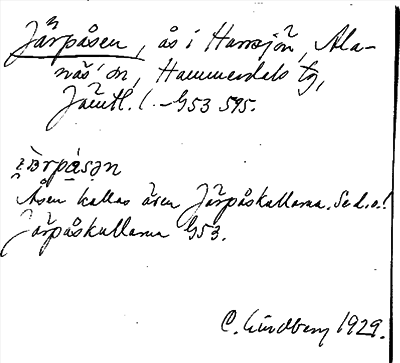 Järpåsen, ås i Harrsjön, Ala-
näs sn, Hammerdals tg,
Jämtl. l. - G53 595.
Åsen kallas även Järpåskullarna. Se d.o.!
Järpåskullarna G53.
C. Lindberg 1929.